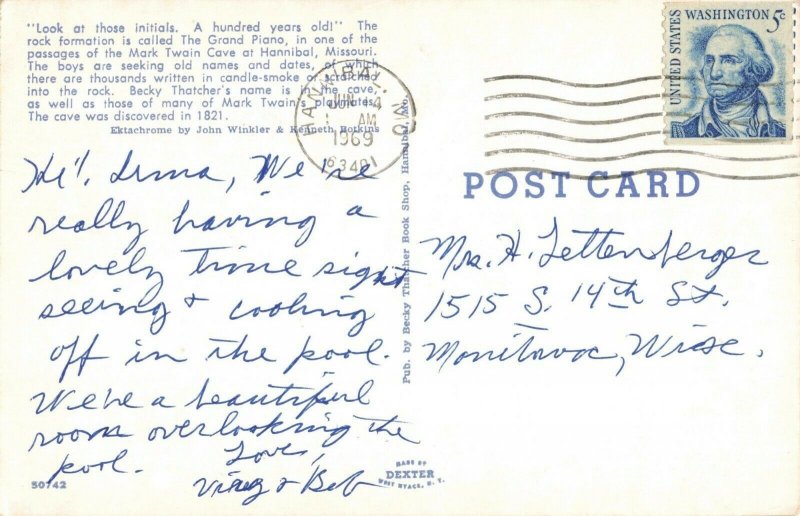 "Look at those initials. A hundred years old!" The
rock formation is called The Grand Piano, in one of the
passages of the Mark Twain Cave at Hannibal, Missouri.
The boys are seeking old names and dates, of which
there are thousands written in candle-smoke or scratched
into the rock. Becky Thatcher's name is in the cave,
as well as those of many of Mark Twain's playmates.
The cave was discovered in 1821.
Ektachrome by John Winkler & Kenneth Botkins
Hi! Irma, We're
really having a
lovely time sight
seeing & cooling
off in the pool.
We've a beautiful
room overlooking the
pool. Love,
& Bob
50742
HANNIBAL, MO.
JUN 4
AM
1969
63401
Pub. by Becky Thatcher Book Shop, Hannibal, Mo.
MADE BY
DEXTER
WEST NYACK, N. Y.
UNITED STATES
WASHINGTON 5c
POST CARD
Mrs. H. Lettenberger
1515 S. 14th St.
Manitowoc, Wisc.